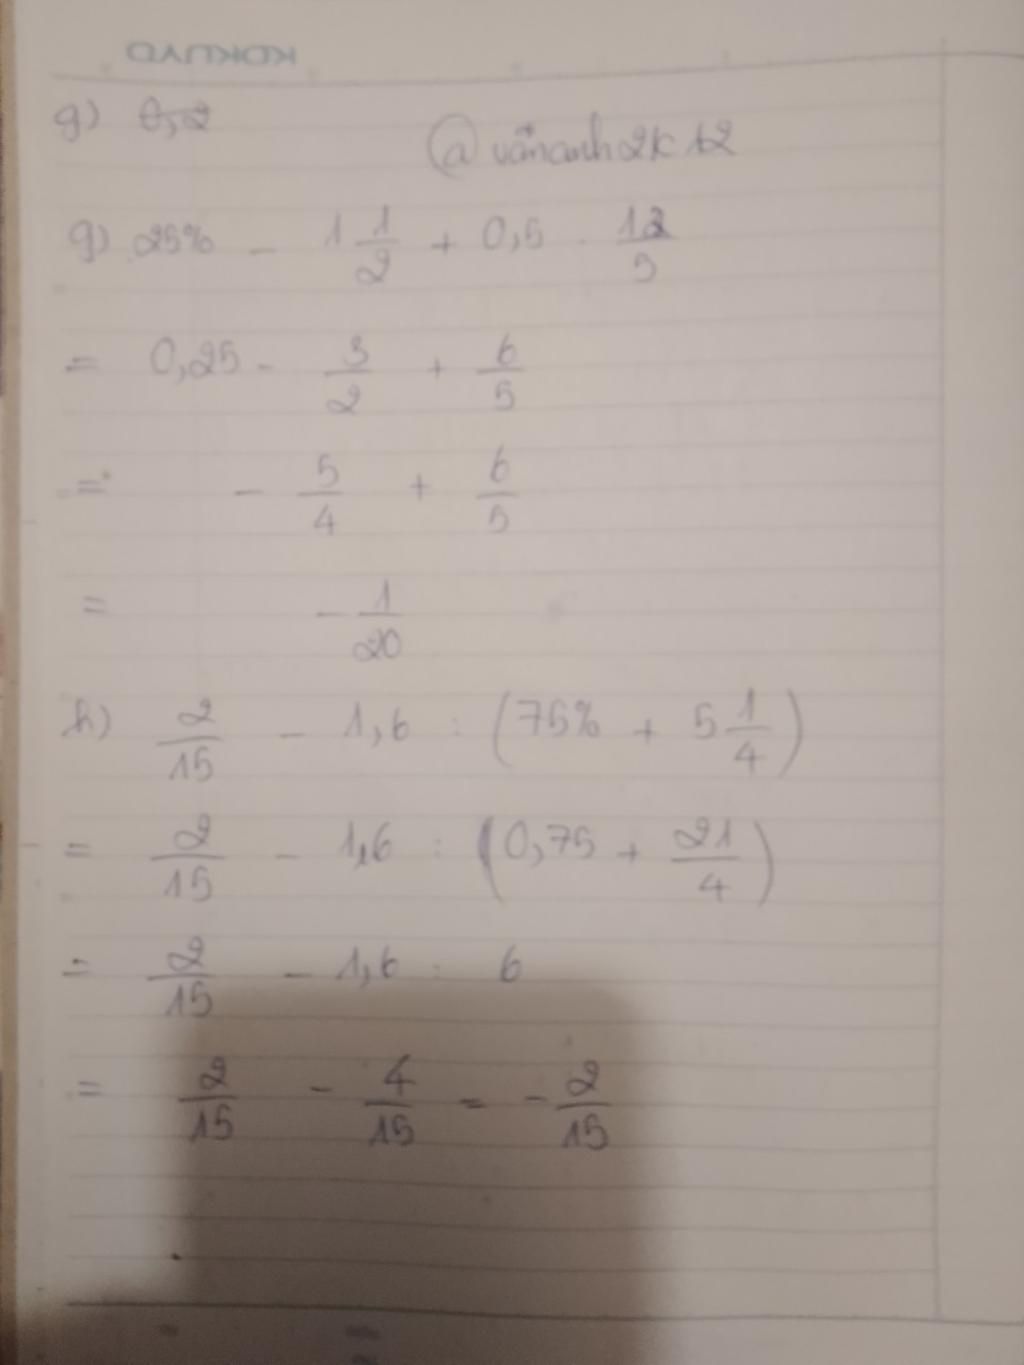 g) 0,2
@vânanh2k12
g) 25% - 1 1/2 + 0,5 . 12/5
= 0,25 - 3/2 + 6/5
= - 5/4 + 6/5
= - 1/20
h) 2/15 - 1,6 : (75% + 5 1/4)
= 2/15 - 1,6 : (0,75 + 21/4)
= 2/15 - 1,6 : 6
= 2/15 - 4/15 = - 2/15